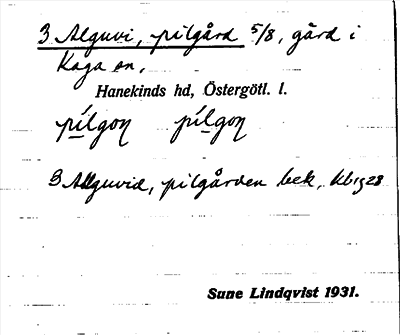 3 Alguvi, pilgård 5/8, gård i
Kaga sn,
Hanekinds hd, Östergötl. l.
pílgoɲ pílgoɲ
3 Allguvid, pilgården bek. Kb1728
Sune Lindqvist 1931.